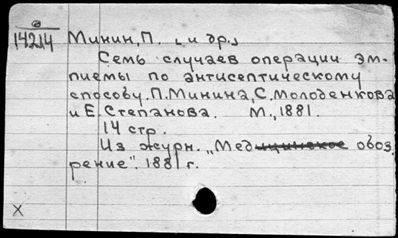 14214 Минин, П. [и др.]
Семь случаев операции эм-
пиемы по антисептическому
способу. П. Минина, С. Молоденкова
и Е. Степанова. М., 1881.
14 стр.
Из журн. „Медицинское обоз
рение". 1881 г.
X